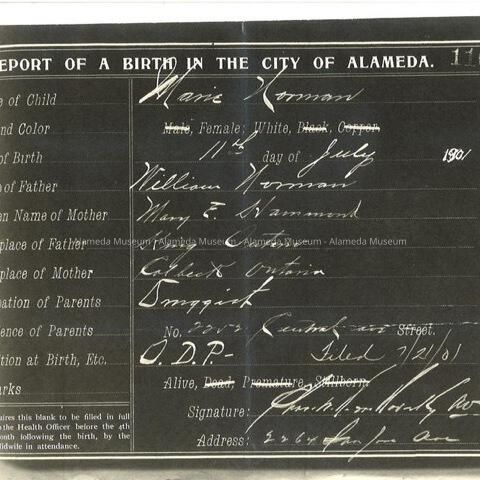 EPORT OF A BIRTH IN THE CITY OF ALAMEDA. 11
e of Child Marie Norman
nd Color Male, Female; White, Black, Copper.
of Birth 11th day of July 1901
of Father William Norman
en Name of Mother Mary E. Hammond
place of Father Ontario
Alameda Museum - Alameda Museum - Alameda Museum - Alameda Museum
place of Mother Corbeck Ontario
ation of Parents Druggist
ence of Parents No. 2252 Central ave Street.
ition at Birth, Etc. O.D.P- Filed 7/21/01
arks Alive, Dead, Premature, Stillborn.
uires this blank to be filled in full
o the Health Officer before the 4th
onth following the birth, by the
idwife in attendance.
Signature:
Address: 2264 San Jose Ave